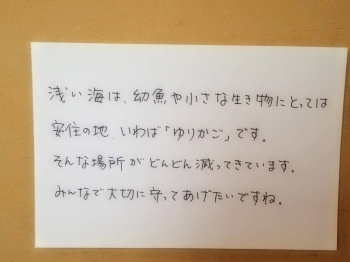 浅い海は、幼魚や小さな生き物にとっては
安住の地、いわば「ゆりかご」です。
そんな場所がどんどん減ってきています。
みんなで大切に守ってあげたいですね。